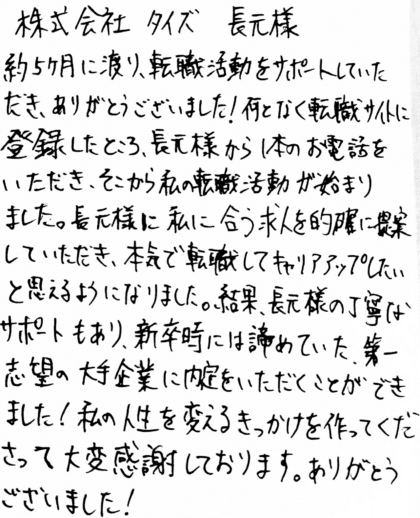 株式会社 タイズ 長元様
約5ヶ月に渡り、転職活動をサポートしていた
だき、ありがとうございました!何となく転職サイトに
登録したところ、長元様から1本のお電話を
いただき、そこから私の転職活動が始まり
ました。長元様に私に合う求人を的確に提案
していただき、本気で転職してキャリアアップしたい
と思えるようになりました。結果、長元様の丁寧な
サポートもあり、新卒時には諦めていた、第一
志望の大手企業に内定をいただくことができ
ました!私の人生を変えるきっかけを作ってくだ
さって大変感謝しております。ありがとう
ございました!